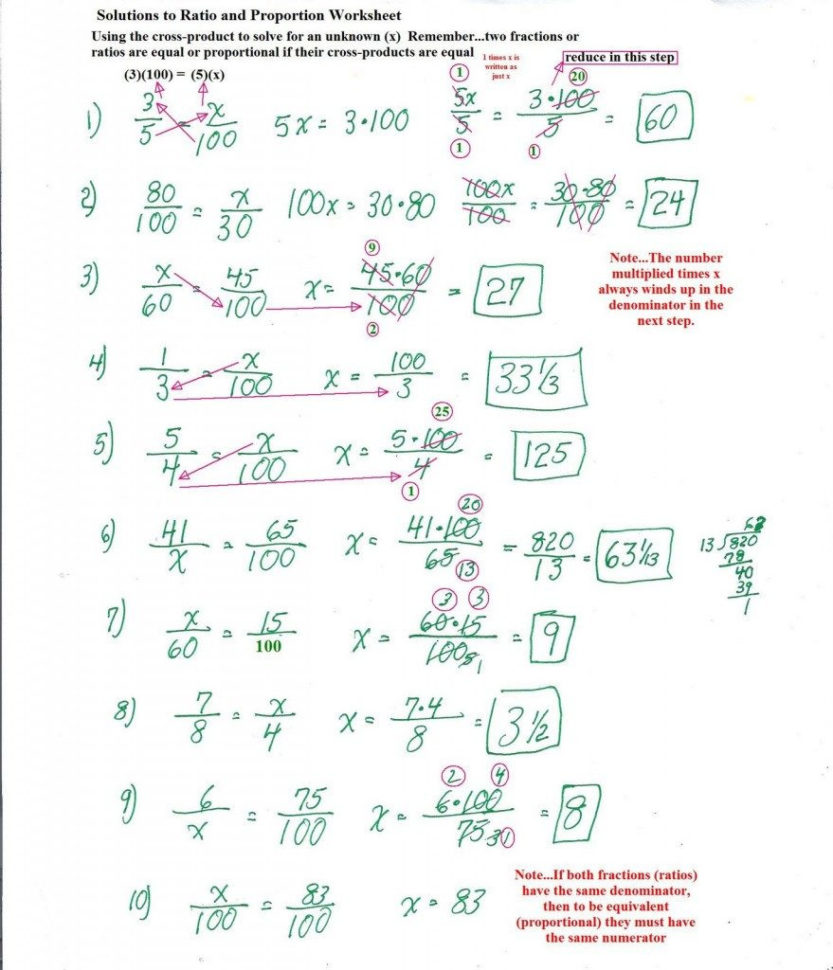 Solutions to Ratio and Proportion Worksheet
Using the cross-product to solve for an unknown (x) Remember...two fractions or
ratios are equal or proportional if their cross-products are equal
1 times x is
written as
just x
reduce in this step
(3)(100) = (5)(x)
1) 3/5 = x/100 5x = 3•100 5x/5 = 3•100/5 = 60
1 20
1 1
2) 80/100 = x/30 100x = 30•80 100x/100 = 30•80/100 = 24
Note...The number
multiplied times x
always winds up in the
denominator in the
next step.
3) x/60 = 45/100 x = 45•60/100 = 27
9
2
4) 1/3 = x/100 x = 100/3 = 33 1/3
5) 5/4 = x/100 x = 5•100/4 = 125
25
1
6) 41/x = 65/100 x = 41•100/65 = 820/13 = 63 1/13
20
13
13 √820
78
40
39
1
7) x/60 = 15/100 x = 60•15/100 = 9
3 3
8) 7/8 = x/4 x = 7•4/8 = 3 1/2
9) 6/x = 75/100 x = 6•100/75 = 8
2 4
10) x/100 = 83/100 x = 83
Note...If both fractions (ratios)
have the same denominator,
then to be equivalent
(proportional) they must have
the same numerator